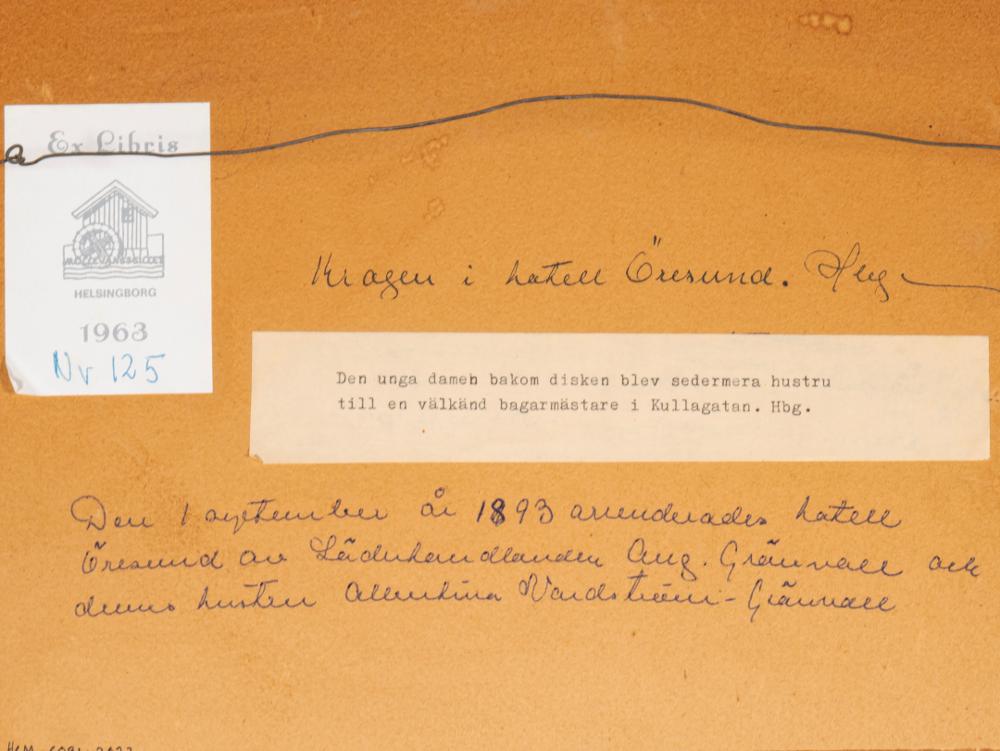 Ex Libris
MÖLLEVÅNGSGILLET
HELSINGBORG
1963
Nr 125
Krogen i hotell Öresund. Hbg
Den unga damen bakom disken blev sedermera hustru
till en välkänd bagarmästare i Kullagatan. Hbg.
Den 1 september år 1893 arrenderades hotell
Öresund av Läderhandlanden Aug. Grönvall och
dennes hustru Nordström-Grönvall